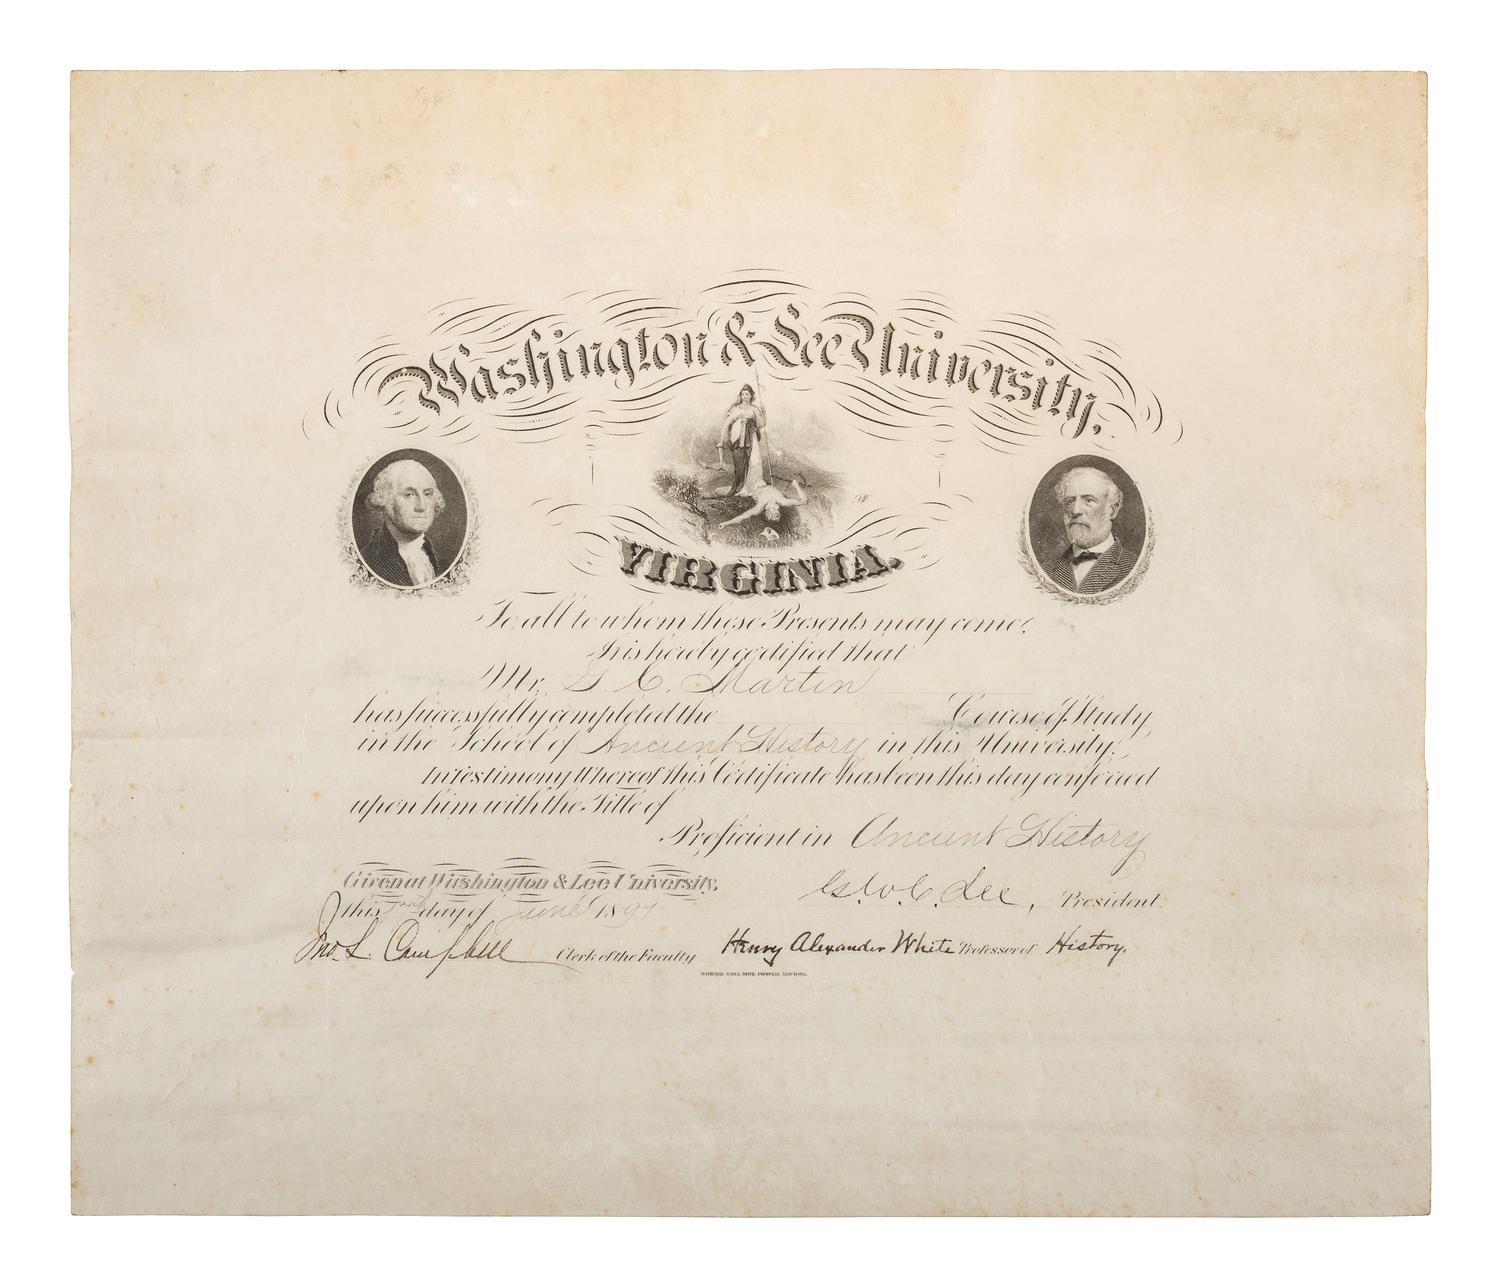 Washington & Lee University,
SIC SEMPER TYRANNIS
VIRGINIA.
To all to whom these Presents may come,
It is hereby certified that
Mr. G. C. Martin
has successfully completed the Course of Study,
in the School of Ancient History in this University.
In Testimony Whereof this Certificate has been this day conferred
upon him with the Title of
Proficient in Ancient History
Given at Washington & Lee University,
G. W. C. Lee, President.
this day of June 1897
Jno. L. Campbell Clerk of the Faculty Henry Alexander White Professor of History.
NATIONAL BANK NOTE COMPANY NEW YORK.